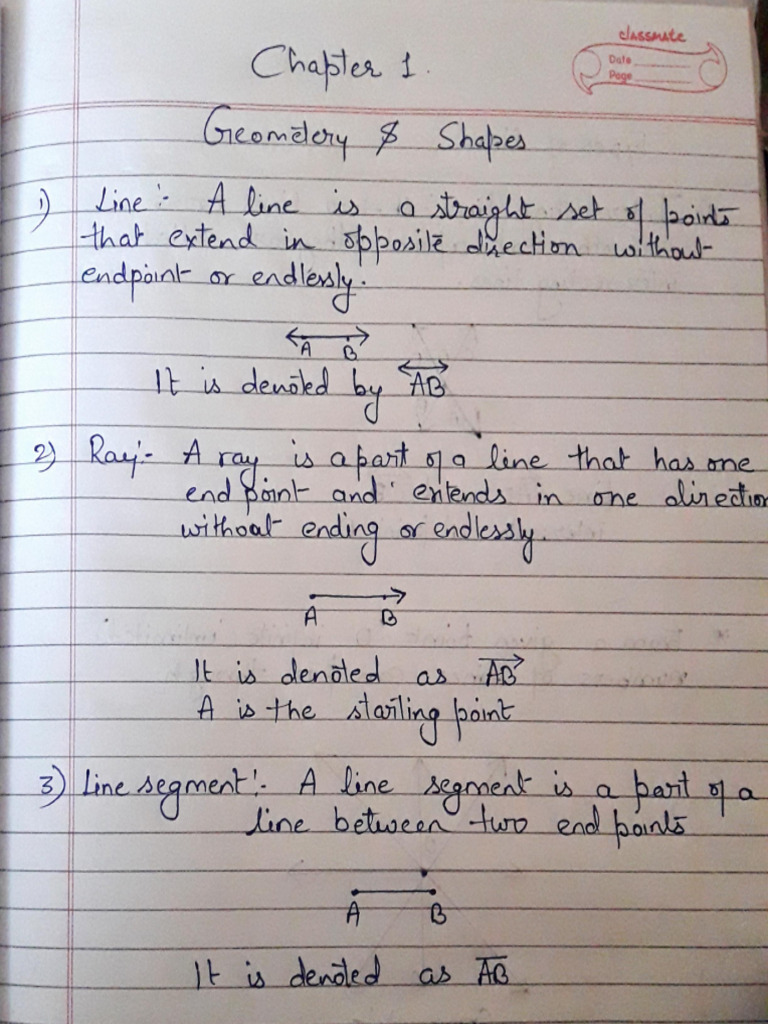 classmate
Date
Page
Chapter 1.
Geometery & Shapes
1) Line :- A line is a straight set of points
that extend in opposite direction without
endpoint or endlessly.
A B
It is denoted by AB
2) Ray :- A ray is a part of a line that has one
end point and extends in one direction
without ending or endlessly.
A B
It is denoted as AB
A is the starting point
3) Line segment :- A line segment is a part of a
line between two end points
A B
It is denoted as AB